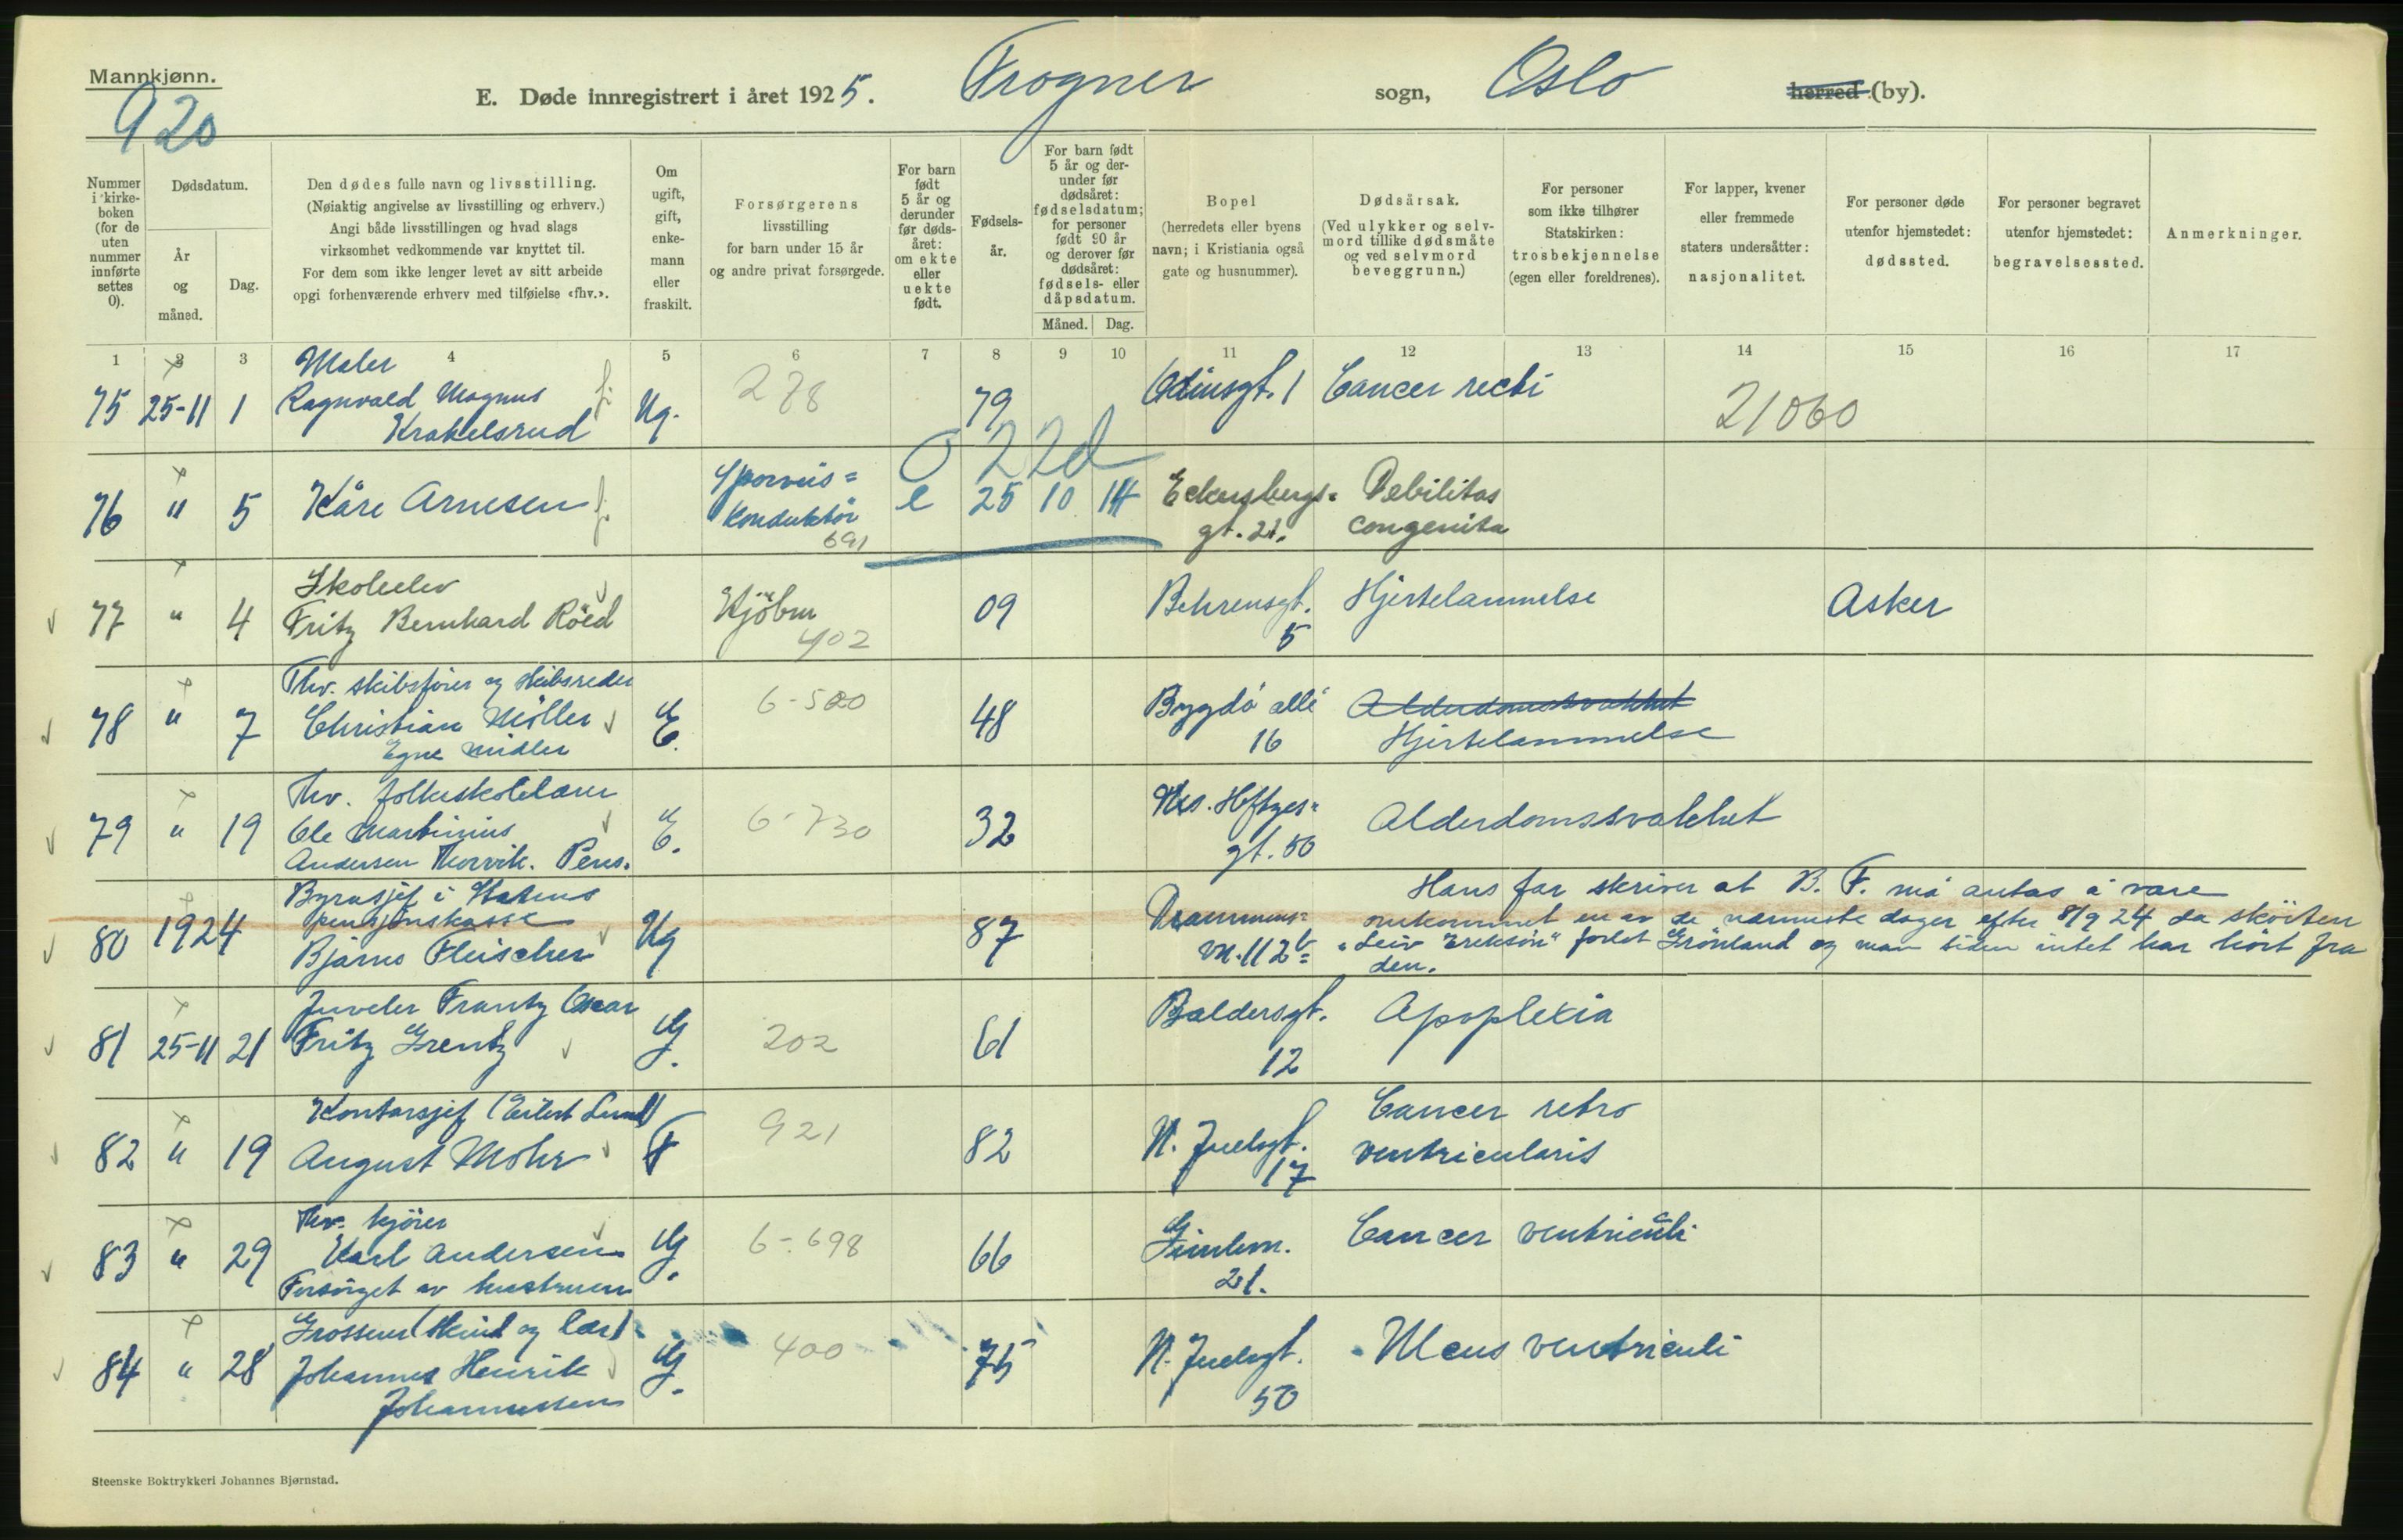 Mannkjønn.
920
E. Døde innregistrert i året 1925. Frogner sogn, Oslo herred (by).
Nummer i kirke- boken (for de uten nummer innførte settes 0).
Dødsdatum.
År og måned.
Dag.
Den dødes fulle navn og livsstilling.
(Nøiaktig angivelse av livsstilling og erhverv.)
Angi både livsstillingen og hvad slags
virksomhet vedkommende var knyttet til.
For dem som ikke lenger levet av sitt arbeide
opgi forhenværende erhverv med tilføielse «fhv.».
Om ugift, gift, enke- mann eller fraskilt.
Forsørgerens
livsstilling
for barn under 15 år
og andre privat forsørgede.
For barn født 5 år og derunder før døds- året: om ekte eller uekte født.
Fødsels- år.
For barn født 5 år og der- under før dødsåret: fødselsdatum; for personer født 90 år og derover før dødsåret: fødsels- eller dåpsdatum.
Måned. Dag.
Bopel
(herredets eller byens
navn; i Kristiania også
gate og husnummer).
Dødsårsak.
(Ved ulykker og selv-
mord tillike dødsmåte
og ved selvmord
beveggrunn.)
For personer
som ikke tilhører
Statskirken:
trosbekjennelse
(egen eller foreldrenes).
For lapper, kvener
eller fremmede
staters undersåtter:
nasjonalitet.
For personer døde
utenfor hjemstedet:
dødssted.
For personer begravet
utenfor hjemstedet:
begravelsessted.
Anmerkninger.
1 2 3 4 5 6 7 8 9 10 11 12 13 14 15 16 17
Maler
75 25-11 1 Ragnvald Magnus Ug. 278 79 Odinsgt. 1 Cancer recti 21060
Krakelsrud
0 22d
76 " 5 Kåre Arnesen Sporveis= e 25 10 14 Eckersbergs= Debilitas
konduktør gt. 21. congenita
691
Skoleelev
77 " 4 Fritz Bernhard Röed Kjöbm 09 Behrensgt. Hjertelammelse Asker
402 5
Fhv. skibsförer og skibsreder
78 " 7 Christian Möller E. 6-500 48 Bygdö allé Alderdomssvakhet
Egne midler 16 Hjertelammelse
Fhv. folkeskolelærer
79 " 19 Ole Martinius E. 6-730 32 Ths. Heftyes= Alderdomssvakhet
Andersen Thorvik. Pens. gt. 50
Byråsjef i Statens
pensjonskasse
80 1924 Bjarne Fleischer Ug 87 Drammens=
vn. 112b=
Hans far skriver at B. F. må antas å være
omkommet en av de nærmeste dager efter 8/9 24 da sköiten
"Leiv Erikson" forlot Grönland og man siden intet har hört fra
den.
Juveler Frantz Oscar
81 25-11 21 Fritz Grentz G. 202 61 Baldersgt. Apoplexia
12
Kontorsjef (Eilert Lund)
82 " 19 August Mohr F 921 82 N. Juelsgt. Cancer retro
17 ventricularis
Fhv. kjörer
83 " 29 Karl Andersen G. 6-698 66 Gimlevn. Cancer ventriculi
Forsörget av hustruen 21.
Grosserer (skind og lær)
84 " 28 Johannes Henrik G. 400 75 N. Juelsgt. Ulcus ventriculi
Johannessen 50
Steenske Boktrykkeri Johannes Bjørnstad.